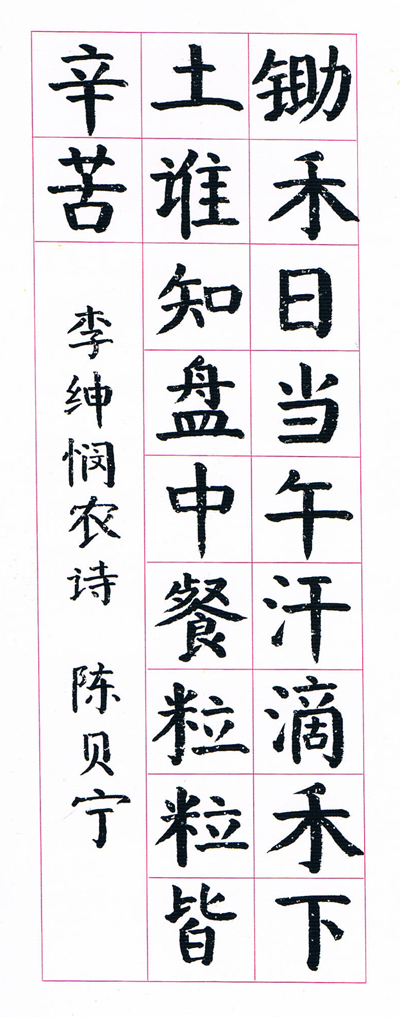 锄禾日当午汗滴禾下
土谁知盘中餐粒粒皆
辛苦
李绅悯农诗 陈贝宁